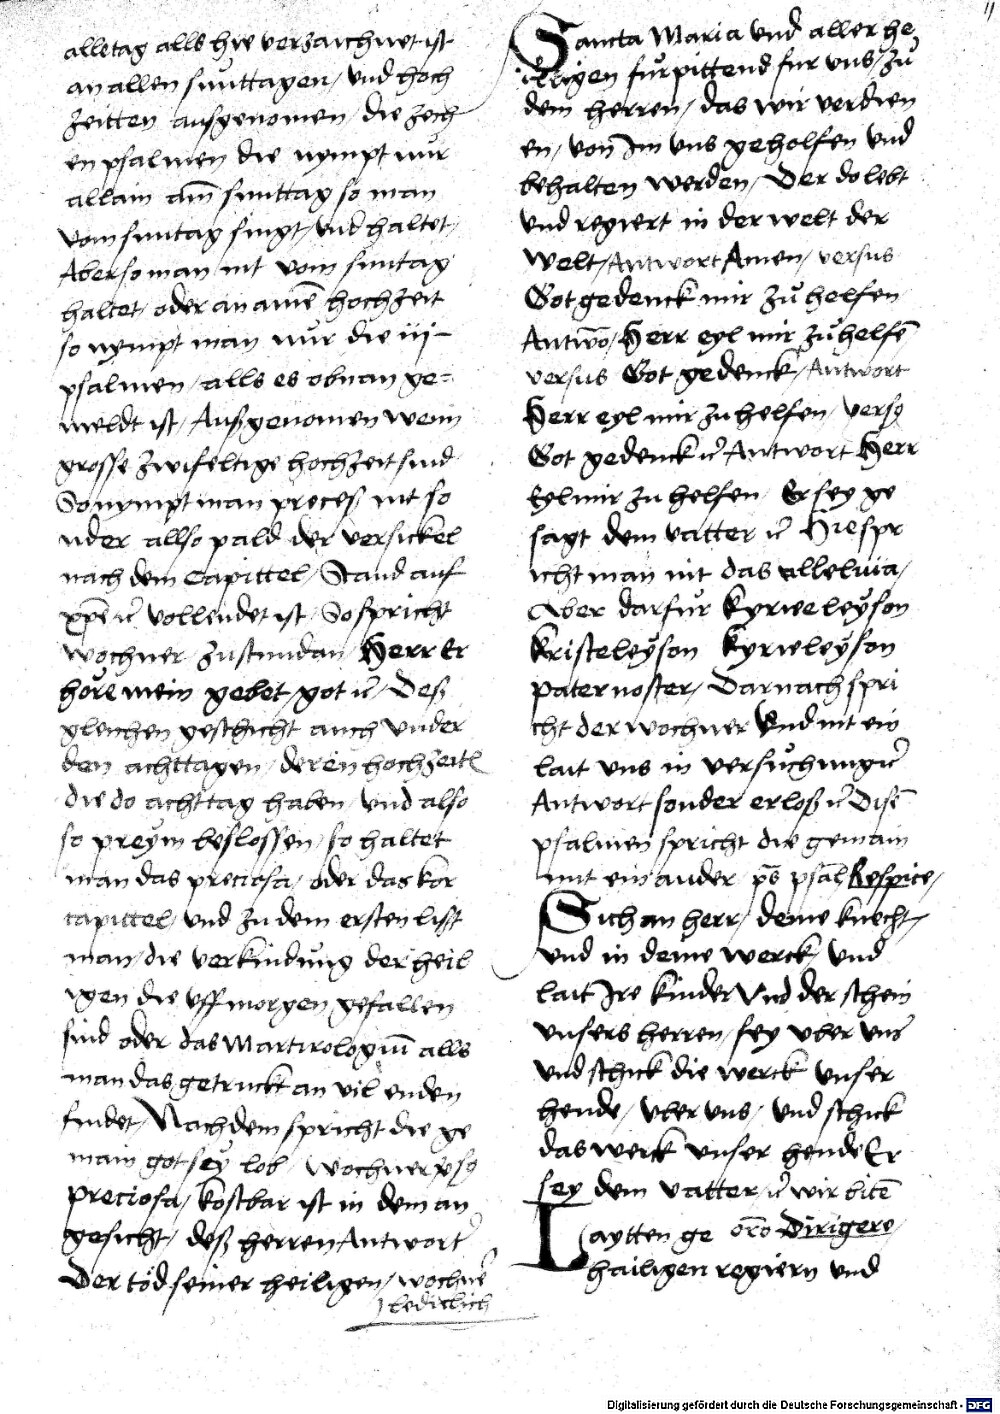 alletag alls hye verzaichnet ist
an allen sunttagen / und hoch
zeitten ausgenomen / die zech
en psalmen die nympt nur
allain am̄ sunttag so man
vom suntag singt / und haltet /
Aber so man nit vom suntag
haltet / oder an ainē hochzeit
so nympt man nur die iij
psalmen / alls es obnan ge=
meldt ist / Außgenomen wenn
grosse zwifeltige hochzeit sind
So nympt man preces nit so
nder allso pald der versickel
nach dem Capittel / Stand auf
vollendet ist / So spricht
wochner zustundan / Herr Er
höre mein gebet / got ꝛc / Deß
gleichen geschicht auch under
den achttagen / deren hochzeitl
die do achttag haben / und also
so preym beslossen / so haltet
man das preciosa / oder das kor
capittel / und zu dem ersten lißt
man / die verkindung der heil
igen die uff morgen gefallen
sind oder das Martirologiū alls
man das getruckt an vil enden
findet / Nachdem spricht die ge
main got sey lob / wochner
preciosa / kostbar ist in dem an
gesicht / deß herren Antwort
Der töd seiner heiligen / wochnē
lediclich
Sancta Maria und aller he
illigen fur pittend fur uns / zů
dem herren / das wir verdien
en / von Im uns geholfen und
behalten werden / Der do lebt
und regiert in der welt der
welt / Antwort Amen / versus
Got gedenck mir zů helfen
Antwō / Herr eyl mir zů helfē
versus Got gedenck / Antwort
Herr eyl mir zu helfen / vers
Got gedenck ꝛc Antwort Herr
Eyl mir zu helfen / Er sey ge
sagt dem vatter ꝛc Hie spr
icht man nit das alleluia /
Aber darfur kyrieleyson
kristeleyson kyrieleyson
pater noster / Darnach spri
cht der wochner Und nit ein
lait uns in versuchung ꝛc
Antwort sonder erloß ꝛc Disē
psalmen spricht die gemain
mit einander / ps̄ psal̄ Respice /
Sich an herr / deine knecht /
und in deine werck / und
lait Ire kinder Und der schein
unsers herren / sey uber uns
und schick die werck unser
hende / uber uns / und schick
das werck unser hende Er
sey dem vatter / ꝛc wir bitē
Laytten ge orō Dirigere /
hailigen regiern und
Digitalisierung gefördert durch die Deutsche Forschungsgemeinschaft - DFG